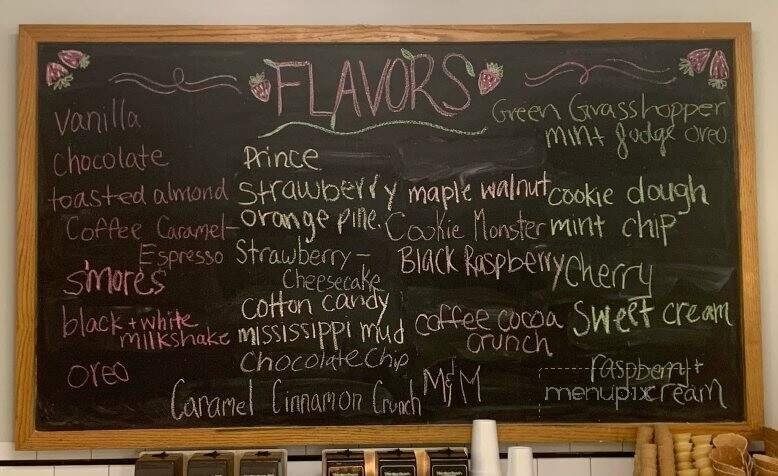 FLAVORS
Vanilla
Chocolate
toasted almond
Coffee Caramel-
Espresso
s'mores
black + white
milkshake
oreo
Prince
Strawberry
orange pine.
Strawberry -
Cheesecake
Cotton candy
mississippi mud
Chocolate Chip
Caramel Cinnamon Crunch
maple walnut
Cookie Monster
Black Raspberry
coffee cocoa
crunch
M&M
Green Grasshopper
mint fudge oreo
cookie dough
mint chip
Cherry
Sweet cream
raspberry +
cream
menupix